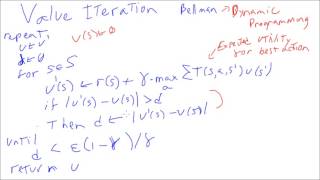 Value Iteration
Bellman → Dynamic Programming
repeat:
U ← U'
U(s)←0
d ← 0
for s∈S
Expected utility for best action
U'(s) ← r(s) + γ·max_a ∑T(s,a,s')U(s')
if |U'(s) - U(s)| > d
Then d ← |U'(s) - U(s)|
until
d < ε(1-γ)/γ
return U